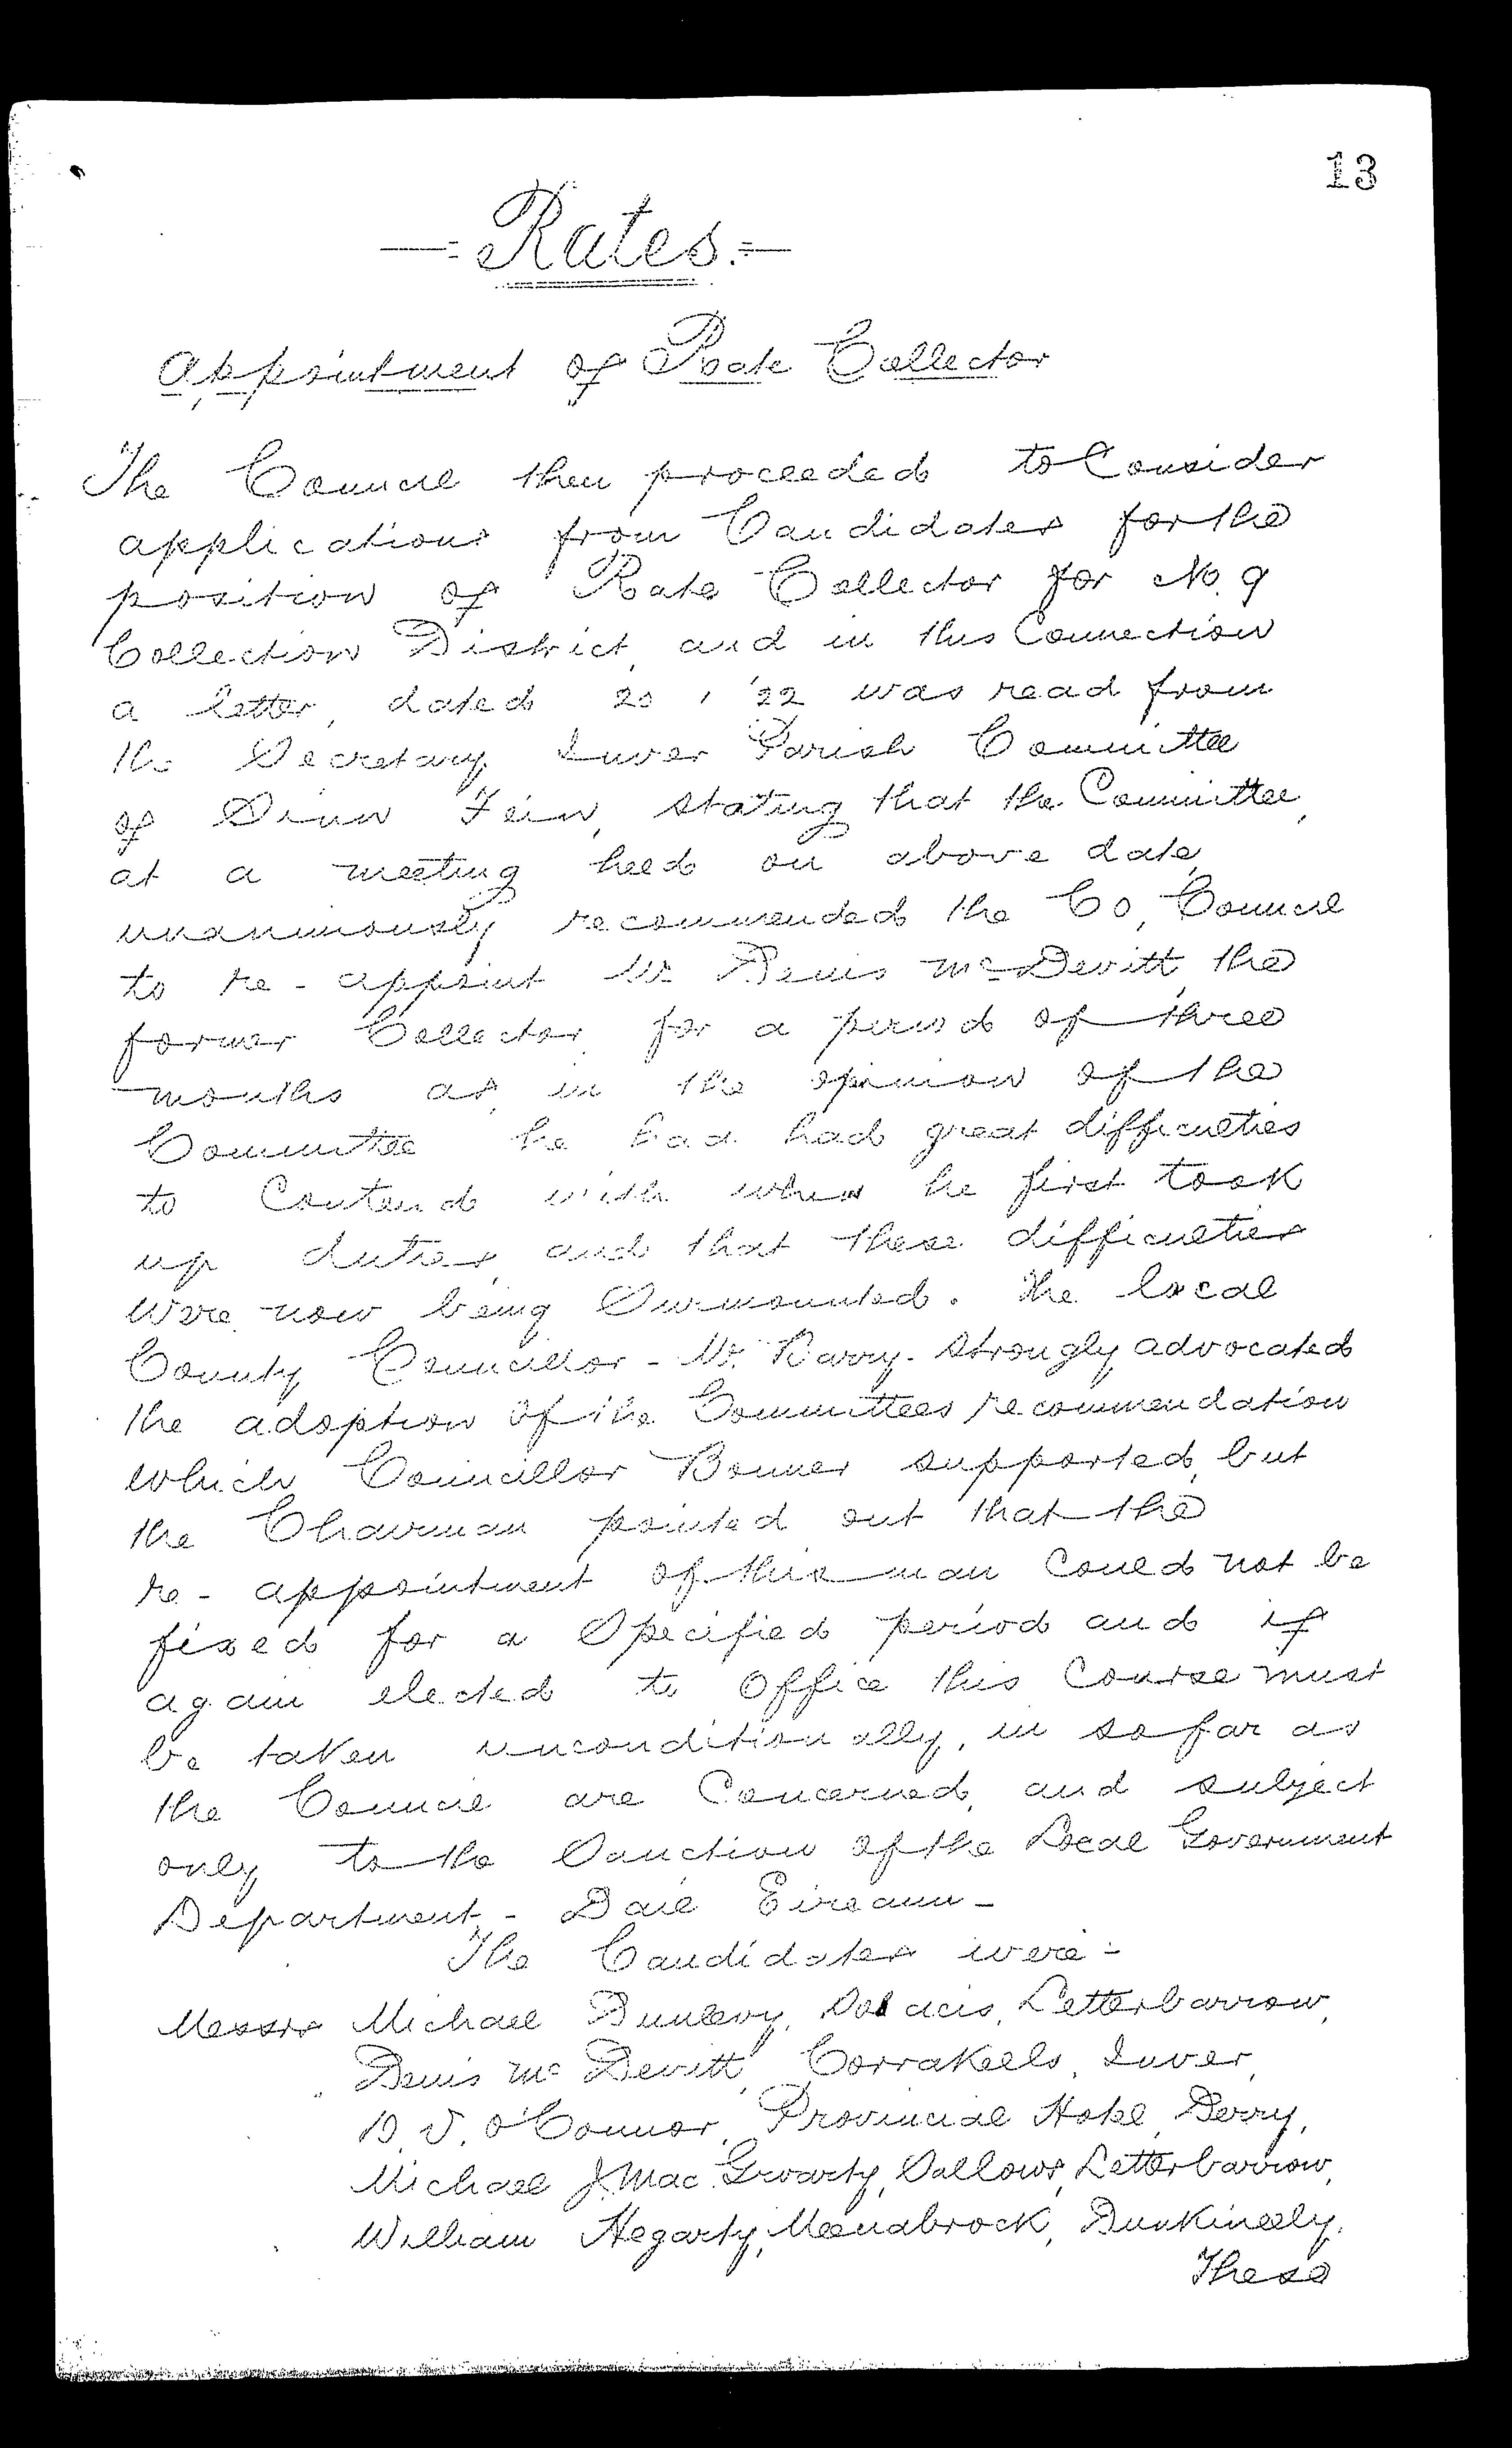 13
—= Rates. =—
Appointment of Rate Collector
The Council then proceeded to Consider
applications from Candidates for the
position of Rate Collector for No. 9
Collection District, and in this Connection
a letter, dated 20 1 '22 was read from
the Secretary Inver Parish Committee
of Sinn Féin, stating that the Committee,
at a meeting held on above date,
unanimously recommended the Co, Council
to re-appoint Mr Denis McDevitt, the
former Collector, for a period of three
months as, in the opinion of the
Committee he had had great difficulties
to Contend with when he first took
up duties, and that these difficulties
were now being Surmounted. The local
County Councillor - Mr. Barry - strongly advocated
the adoption of the Committees recommendation
which Councillor Bonner supported, but
the Chairman pointed out that the
re-appointment of this man Could not be
fixed for a Specified period and if
again elected to Office this Course must
be taken unconditionally, in so far as
the Council are Concerned, and subject
only to the Sanction of the Local Government
Department, - Dail Eireann -
The Candidates were -
Messrs Michael Dunlevy, Letterbarrow,
" Denis McDevitt, Corrakeels, Inver,
D. V. O'Connor, Provincial Hotel, Derry,
Michael J. Mac Groarty, Sallows, Letterbarrow,
William Hegarty, Meenabrock, Dunkineely.
These